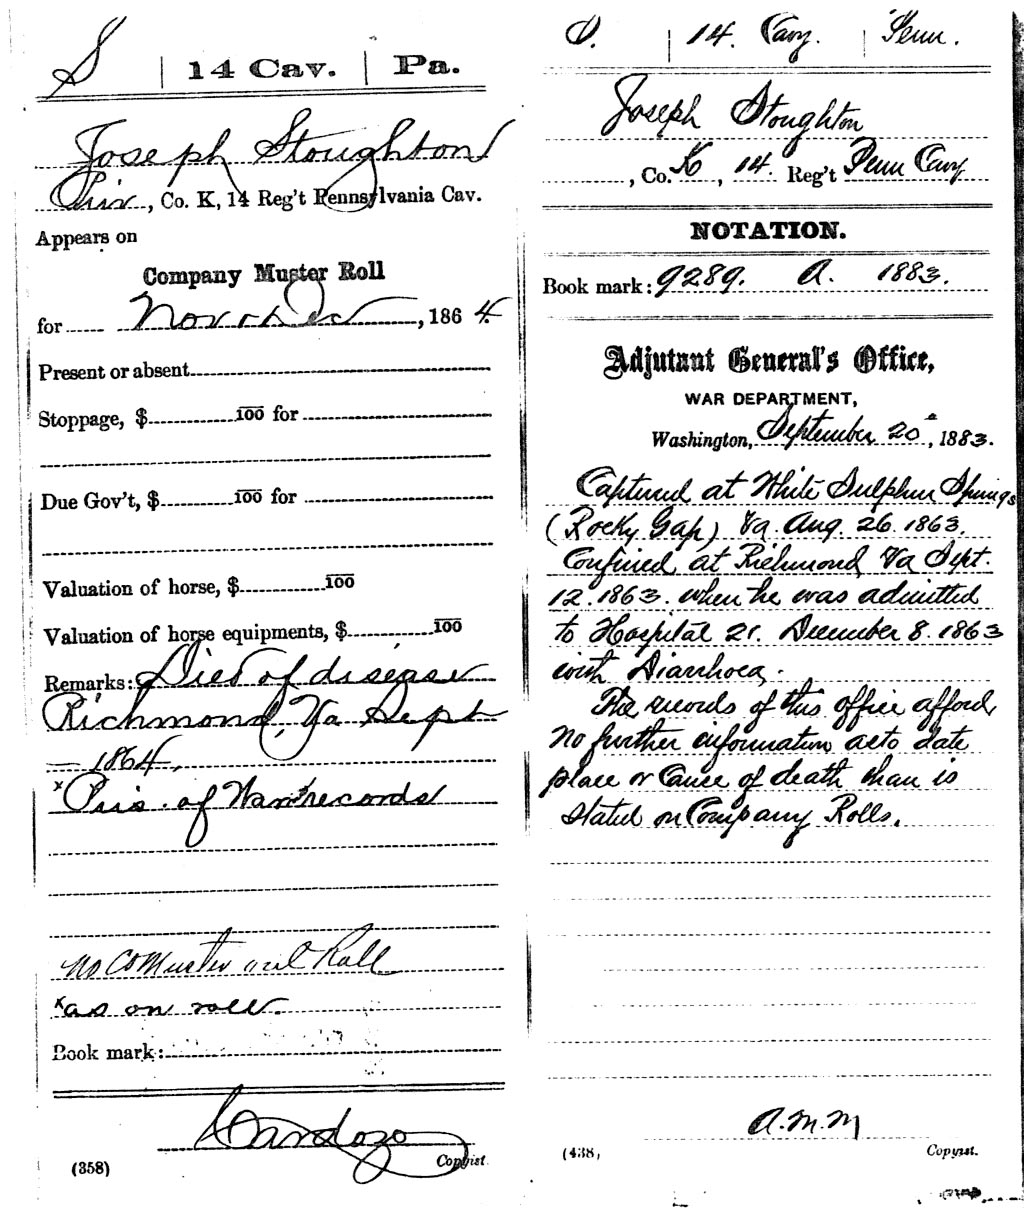 S | 14 Cav. | Pa.
Joseph Stoughton
Priv, Co. K, 14 Reg't Pennsylvania Cav.
Appears on
Company Muster Roll
for Nov & Dec, 1864.
Present or absent
Stoppage, $ 100 for
Due Gov't, $ 100 for
Valuation of horse, $ 100
Valuation of horse equipments, $ 100
Remarks: Died of disease
Richmond, Va Sept
— 1864.
x Pris. of War records
no Co Muster out Roll
x as on roll.
Book mark:
Cardozo
(358) Copyist.
S. | 14. Cavy. | Penn.
Joseph Stoughton
, Co. K, 14. Reg't Penn Cavy
NOTATION.
Book mark: 9289. A. 1883.
Adjutant General's Office,
WAR DEPARTMENT,
Washington, September 20", 1883.
Captured at White Sulphur Springs
(Rocky Gap) Va. Aug. 26. 1863.
Confined at Richmond Va Sept.
12. 1863. when he was admitted
to Hospital 21. December 8. 1863
with Diarrhoea.
The records of this office afford
no further information as to date
place or Cause of death than is
stated on Company Rolls.
A.M.M
(438) Copyist.